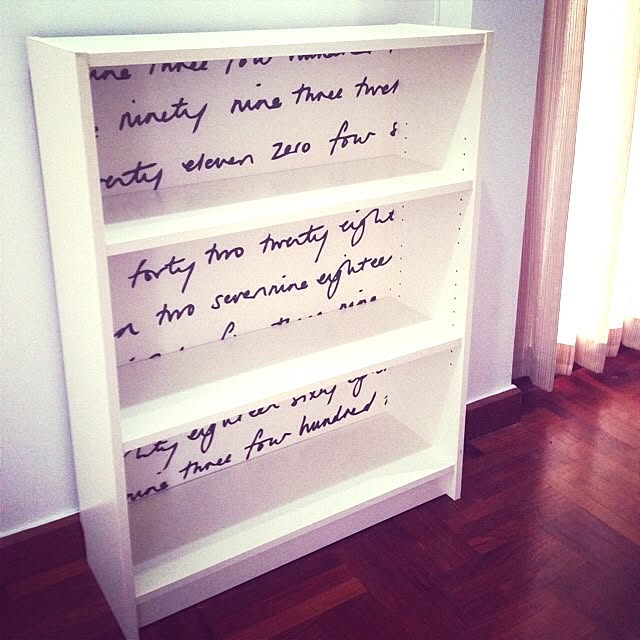 nine three four hundred
ninety nine three twe
enty eleven zero four s
forty two twenty eight
n two sevennine eightee
hty eighteen sixty eigh
nine three four hundred